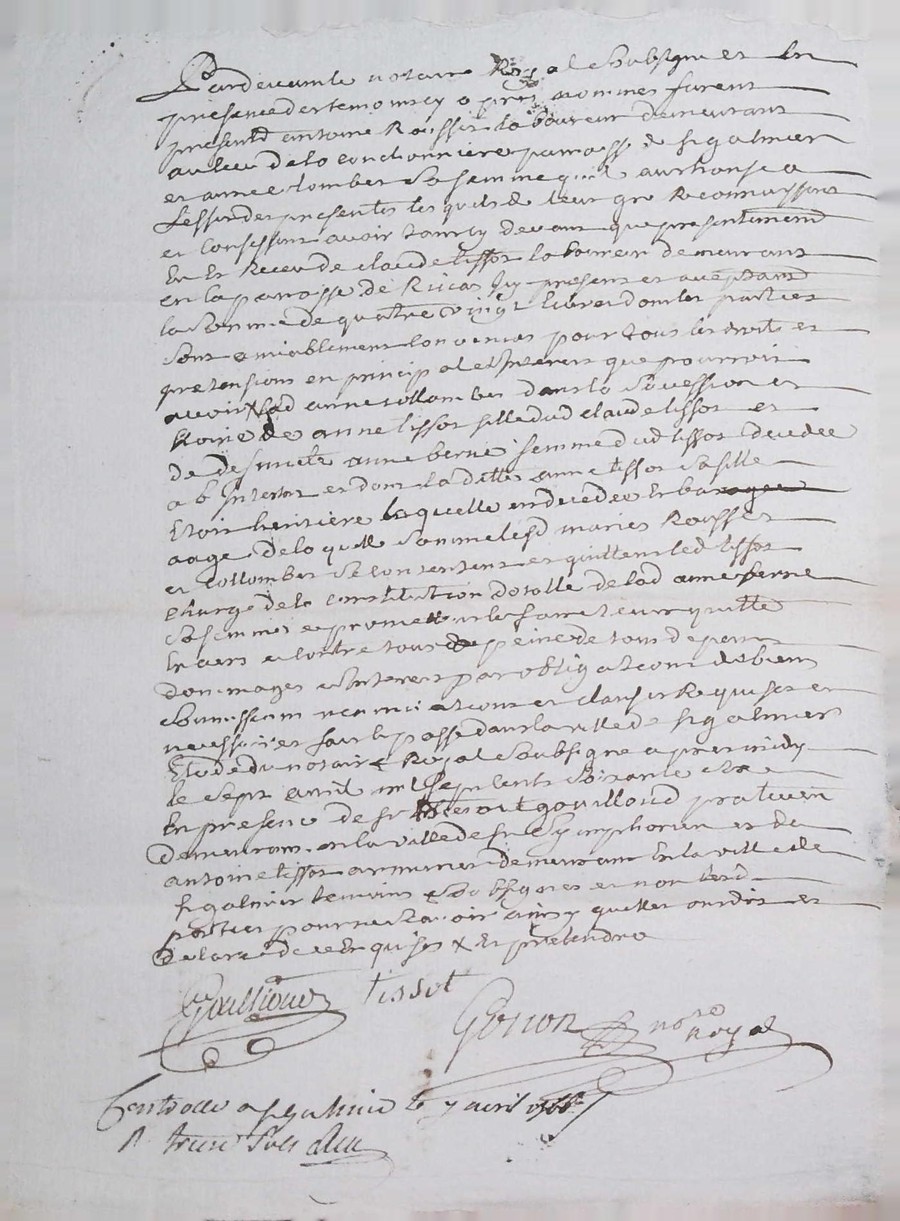 Pardevant le notaire Royal soubsigne et en
presence des temoins cy apres nommes furent
presents antoine Rousset laboureur demeurant
au lieu de la condaminiere paroisse de st galmier
et anne colombet sa femme quil authorise a
Leffet des presentes les quels de leur gre Reconnoissent
et confessent avoir tan cy devant que presentement
Eu et Receu de claude tissot laboureur demeurant
en la paroisse de Rivas Jcy present et aceptant
la somme de quatre vingt livres dont les parties
sont amiablement convenues pour tous les droits et
pretensions en principal et Interests que pourroit
avoir lad anne collombet dans la succession et
hoirie de anne tissot fille dud claude tissot et
de deffuncte anne berne femme dud tissot decedee
ab Intestat et dont la ditte anne tissot sa fille
Etoit heritiere laquelle en decedee En bas
aage de la quelle somme lesd maries Rousset
et collombet se contentent et quittent led tissot
charge de la constitution dotalle de lad anne berne
sa femme et promettent len faire tenir quitte
Envers et contre tous a peine de tous depens
dommages et Interets par obligations de biens
soumissions renonciations et clauses Requises et
necessaires fait et passe dans la ville de st galmier
Etude du notaire Royal soubsigne apres midy
le sept avril mil sept cents soixante
En presence de sr gouilloud praticien
demeurant en la ville de st Symphorien et de
antoine tissot armurier demeurant En la ville de
st galmier temoins soubsignes et non lesd
parties pour ne sçavoir ainsy quelles ont dit et
declare de ce Enquises &
tissot
Gonon nore
Royal
Controlle a st galmier le 7 avril
R treize sols